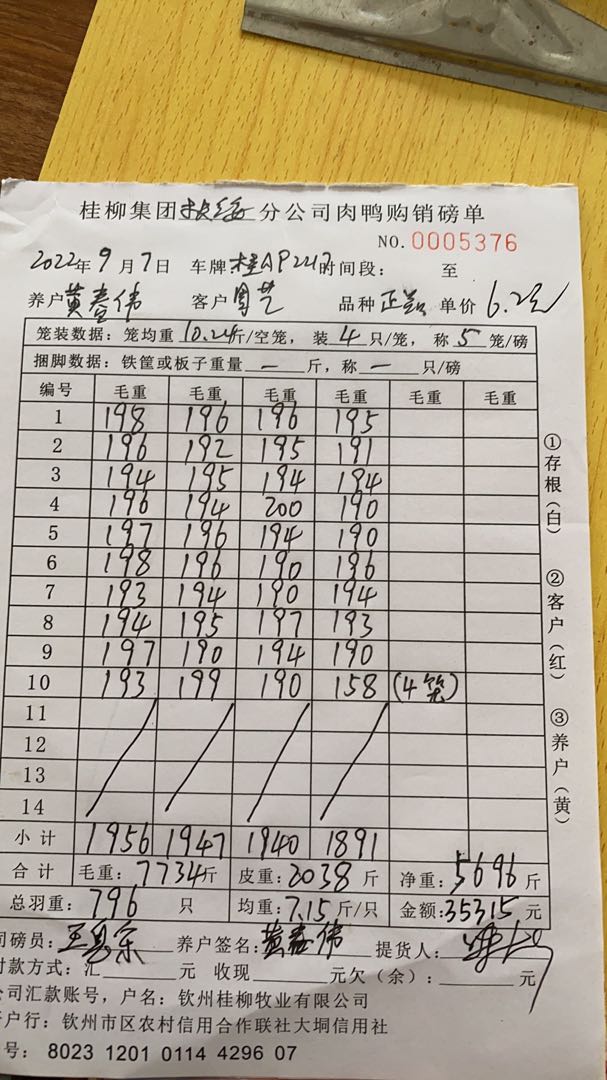 桂柳集团扶绥分公司肉鸭购销磅单
NO.0005376
2022年9月7日 车牌桂AP2217时间段: 至
养户 黄春伟 客户 周艺 品种 单价 6.2元
笼装数据: 笼均重 10.24斤/空笼, 装 4 只/笼, 称 5 笼/磅
捆脚数据: 铁筐或板子重量 — 斤, 称 — 只/磅
编号 毛重 毛重 毛重 毛重 毛重 毛重
1 198 196 196 195
2 196 192 195 191
3 194 195 194 194
4 196 194 200 190
5 197 196 194 190
6 198 196 190 196
7 193 194 190 194
8 194 195 197 193
9 197 190 194 190
10 193 199 190 158 (4笼)
11
12
13
14
小计 1956 1947 1940 1891
合计 毛重: 7734斤 皮重: 2038斤 净重: 5696斤
总羽重: 796 只 均重: 7.15斤/只 金额: 35315元
司磅员: 养户签名: 黄春伟 提货人:
付款方式: 汇 元 收现 元欠(余): 元
公司汇款账号, 户名: 钦州桂柳牧业有限公司
开户行: 钦州市区农村信用合作联社大垌信用社
号: 8023 1201 0114 4296 07
①存根(白) ②客户(红) ③养户(黄)